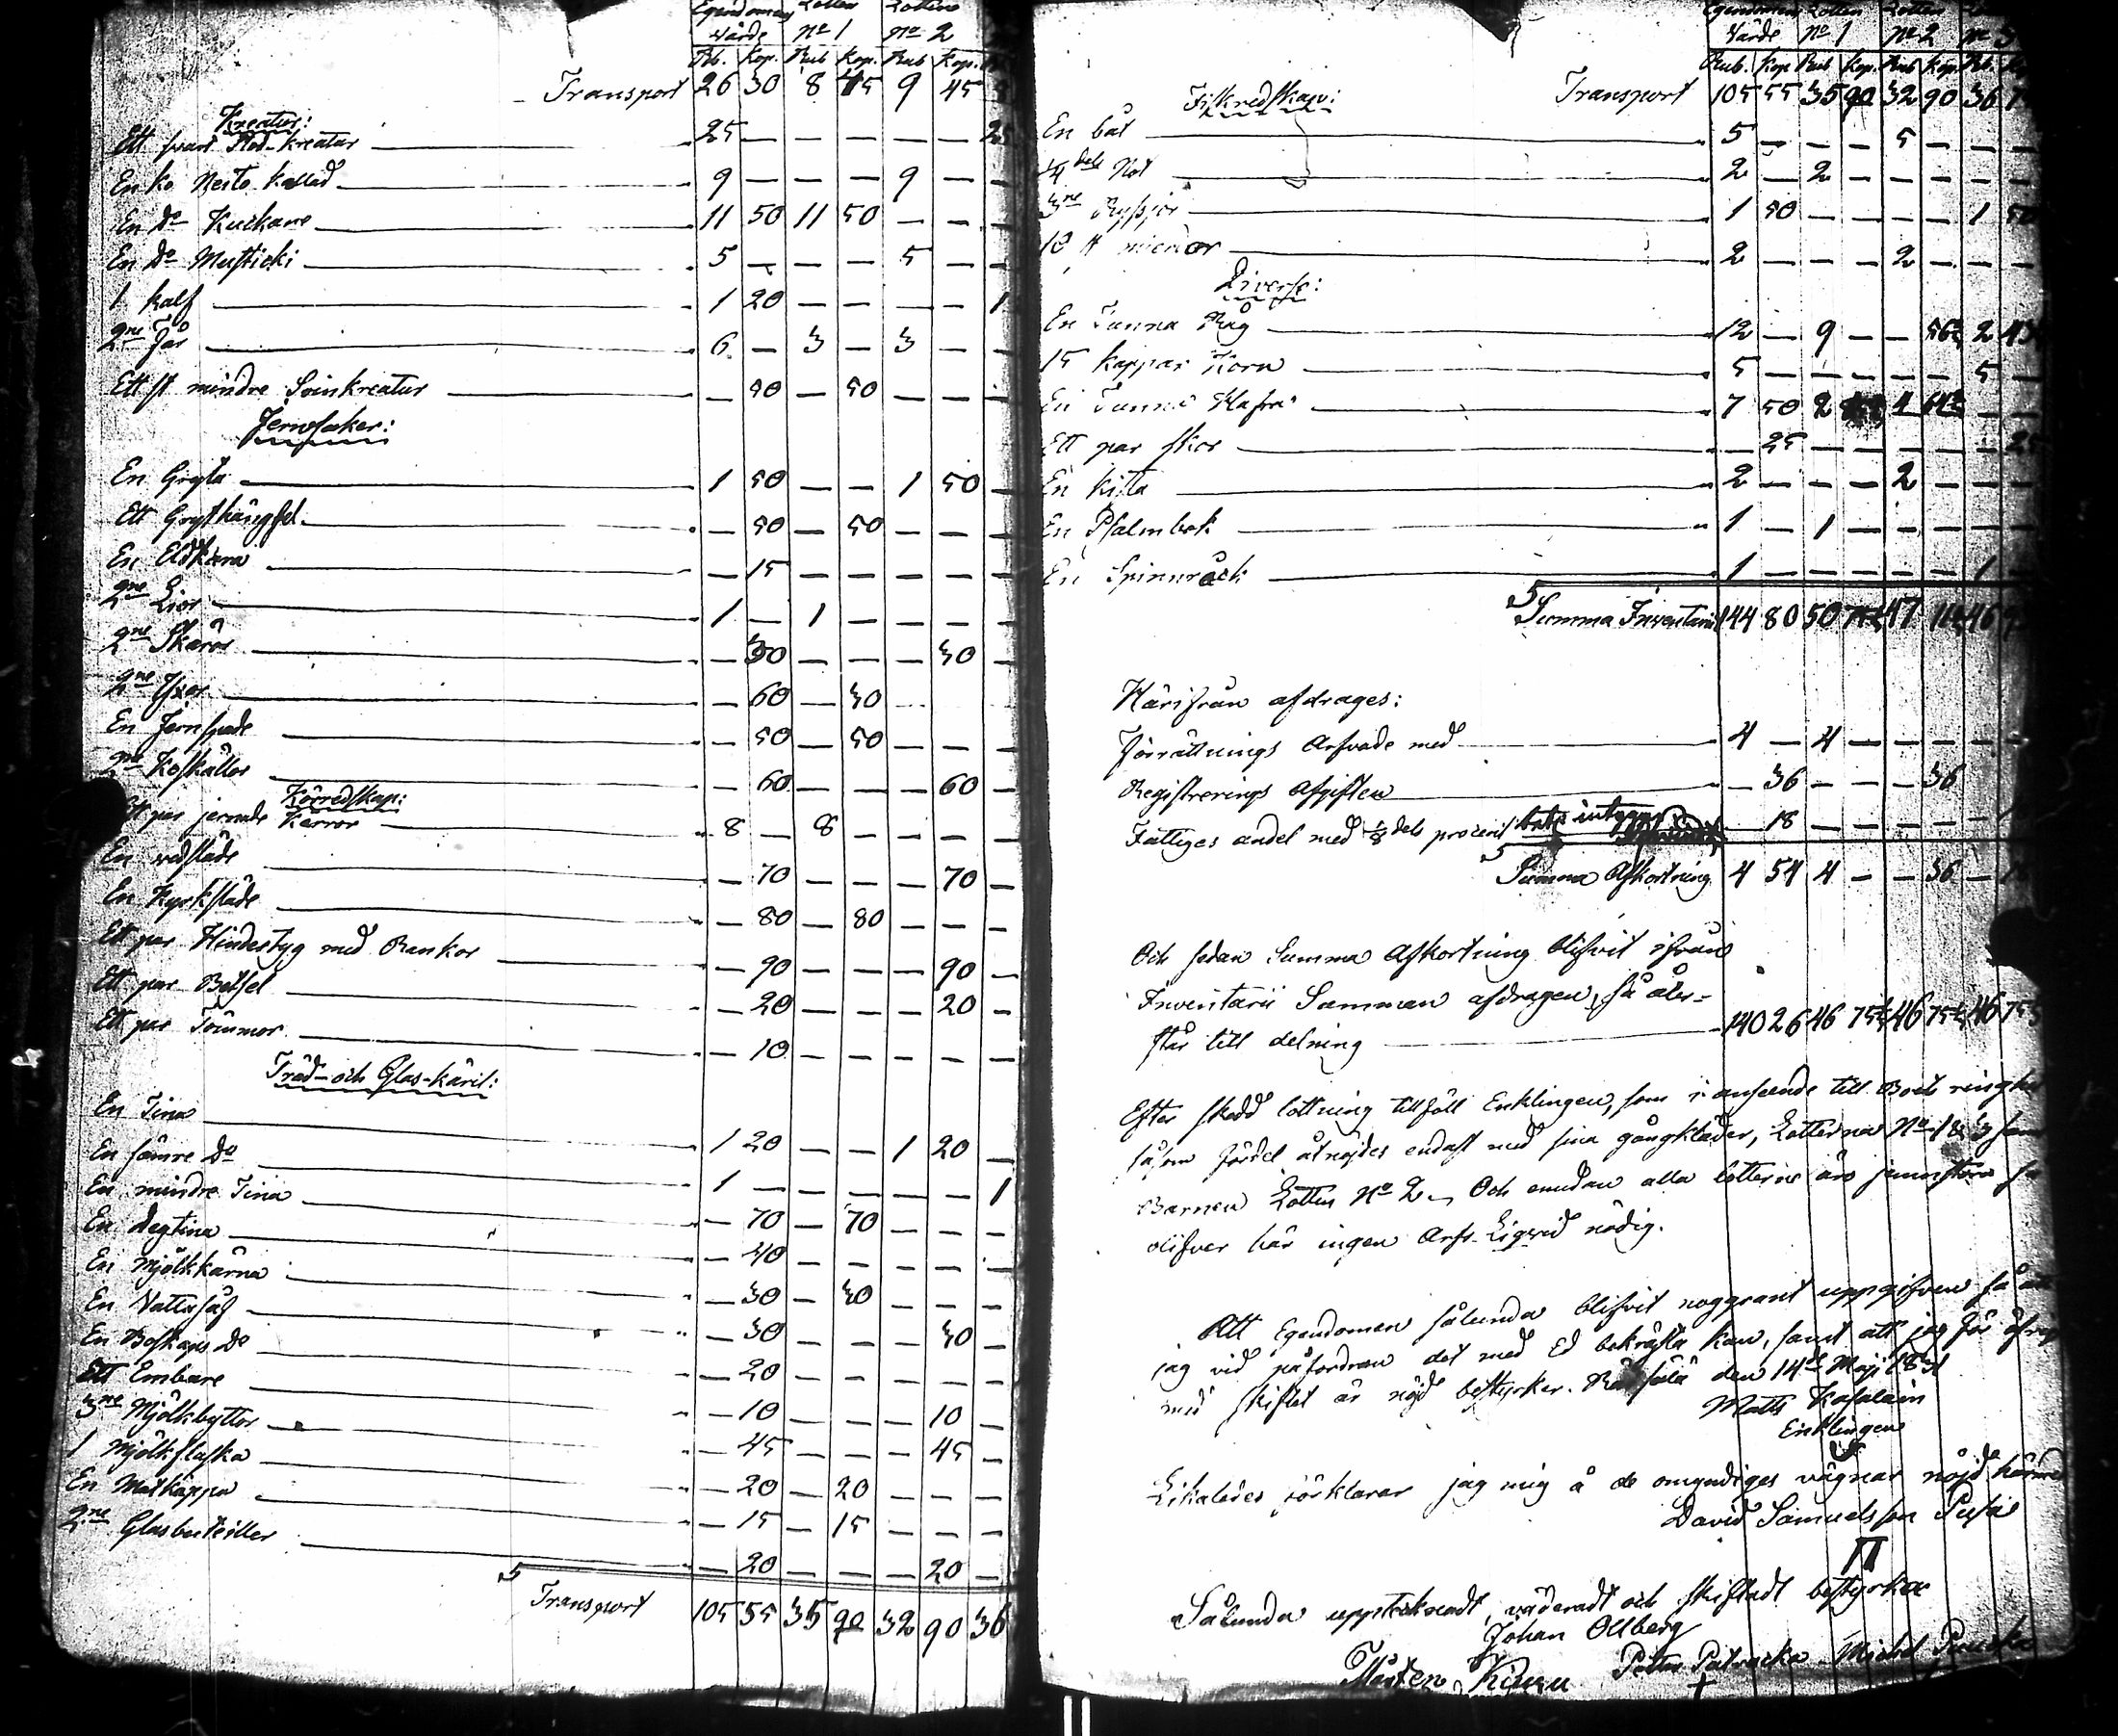 Egendomens Lotten Lotten
Värde No 1 No 2
Rb. Kop. Rub Kop. Rub Kop.
Transport 26 30 8 45 9 45
Kreatur:
Ett svart Stod-kreatur 25 — — — — — 25
En ko Nesto kallad 9 — — — 9 — —
En Do Kuckane 11 50 11 50 — — —
En Do Musticki 5 — — — 5 — —
1 kalf 1 20 — — — — 1
2ne Får 6 — 3 — 3 — —
Ett st mindre Svinkreatur — 50 — 50 — — —
Jernsaker:
En Gryta 1 50 — — 1 50 —
Ett Grythängsel — 50 — 50 — — —
En Eldkara — 15 — — — — —
2ne Lior 1 — 1 — — — —
2ne Skäror — 30 — — — 30 —
2ne Yxor — 60 — 30
En Jernspade — 50 — 50 — — —
2ne Koskällor — 60 — — — 60 —
Körredskap:
Ett par jernade Kärror 8 — 8 — — — —
En vedsläde — 70 — — — 70 —
En Kyrksläde — 80 — 80 — — —
Ett par Hindertyg med Rankor — 90 — — — 90 —
Ett par Betsel — 20 — — — 20 —
Ett par Tömmor — 10 — — — — —
Träd- och Glas-käril:
En Tina 1 20 — — 1 20 —
En sämre Do 1 — — — — — 1
En mindre Tina — 70 — 70 — — —
En degtina — 40 — — — — —
En Mjölkkärna — 30 — 30 — — —
En Vattusåg — 30 — — — 30 —
En Boskaps Do — 20 — — — — —
Ett Embare — 10 — — — 10 —
3ne Mjölkbyttor — 45 — — — 45 —
1 Mjölkflaska — 20 — 20 — — —
En Matkappa — 15 — 15 — — —
2ne Glasbuteiller — 20 — — — 20 —
Transport 105 55 35 90 32 90 36
Egendomens Lotten Lotten
Värde No 1 No 2 No 3
Rub. Kop Rub Kop. Rub Kop Rb.
Fiskredskap: Transport 105 55 35 90 32 90 36
En båt 5 — — — 5 — —
1/4 dels Not 2 — 2 — — — —
3ne Ryssjor 1 50 — — — — 1 50
2 — — — 2 — — —
Diverse:
En Tunna Råg 12 — 9 — — 56 2
15 kappar Korn 5 — — — — — 5 —
En Tunna Hafra 7 50 2
Ett par skor — 25 — — — — — 25
En kista 2 — — — 2 — — —
En Psalmbok 1 — 1 — — — — —
En Spinnråck 1 — — — — — 1 —
Summa Inventarii 144 80 50
Härifrån afdrages:
Förrättnings Arfvode med 4 — 4 — — — — —
Registrerings Afgiften — 36 — — — 36 —
Fattiges andel med 1/8 dels procent — 18 — — — — —
Summa Afkortning 4 54 4 — — 36 —
Och sedan Summa Afkortning blifvit ifrån
Inventarii Summan afdragen, så åter-
står till delning 140 26 46 75 46 75 46 75
Efter skedd lottning tillföll Enklingen, som i anseende till Boets
såsom fördel åtnöjdes endast med sina gångkläder, Lotterna No 1 & 3
Barnen Lotten No 2. Och emedan alla lotterne äro jemnstora så
blifver här ingen Arfs-Liqvid nödig.
Att Egendomen sålunda blifvit noggrant uppgifven så
jag vid påfordran det med Ed bekräfta kan, samt att jag för
med skiftet är nöjd bestyrker. den 14de Maji
Matts
Enklingen
Likaledes förklarar jag mig å de omyndiges vägnar nöjd
David Samuelsson
Sålunda upptecknadt, värderadt och skiftadt bestyrka
Johan Ollberg
Mårten Petter Michel